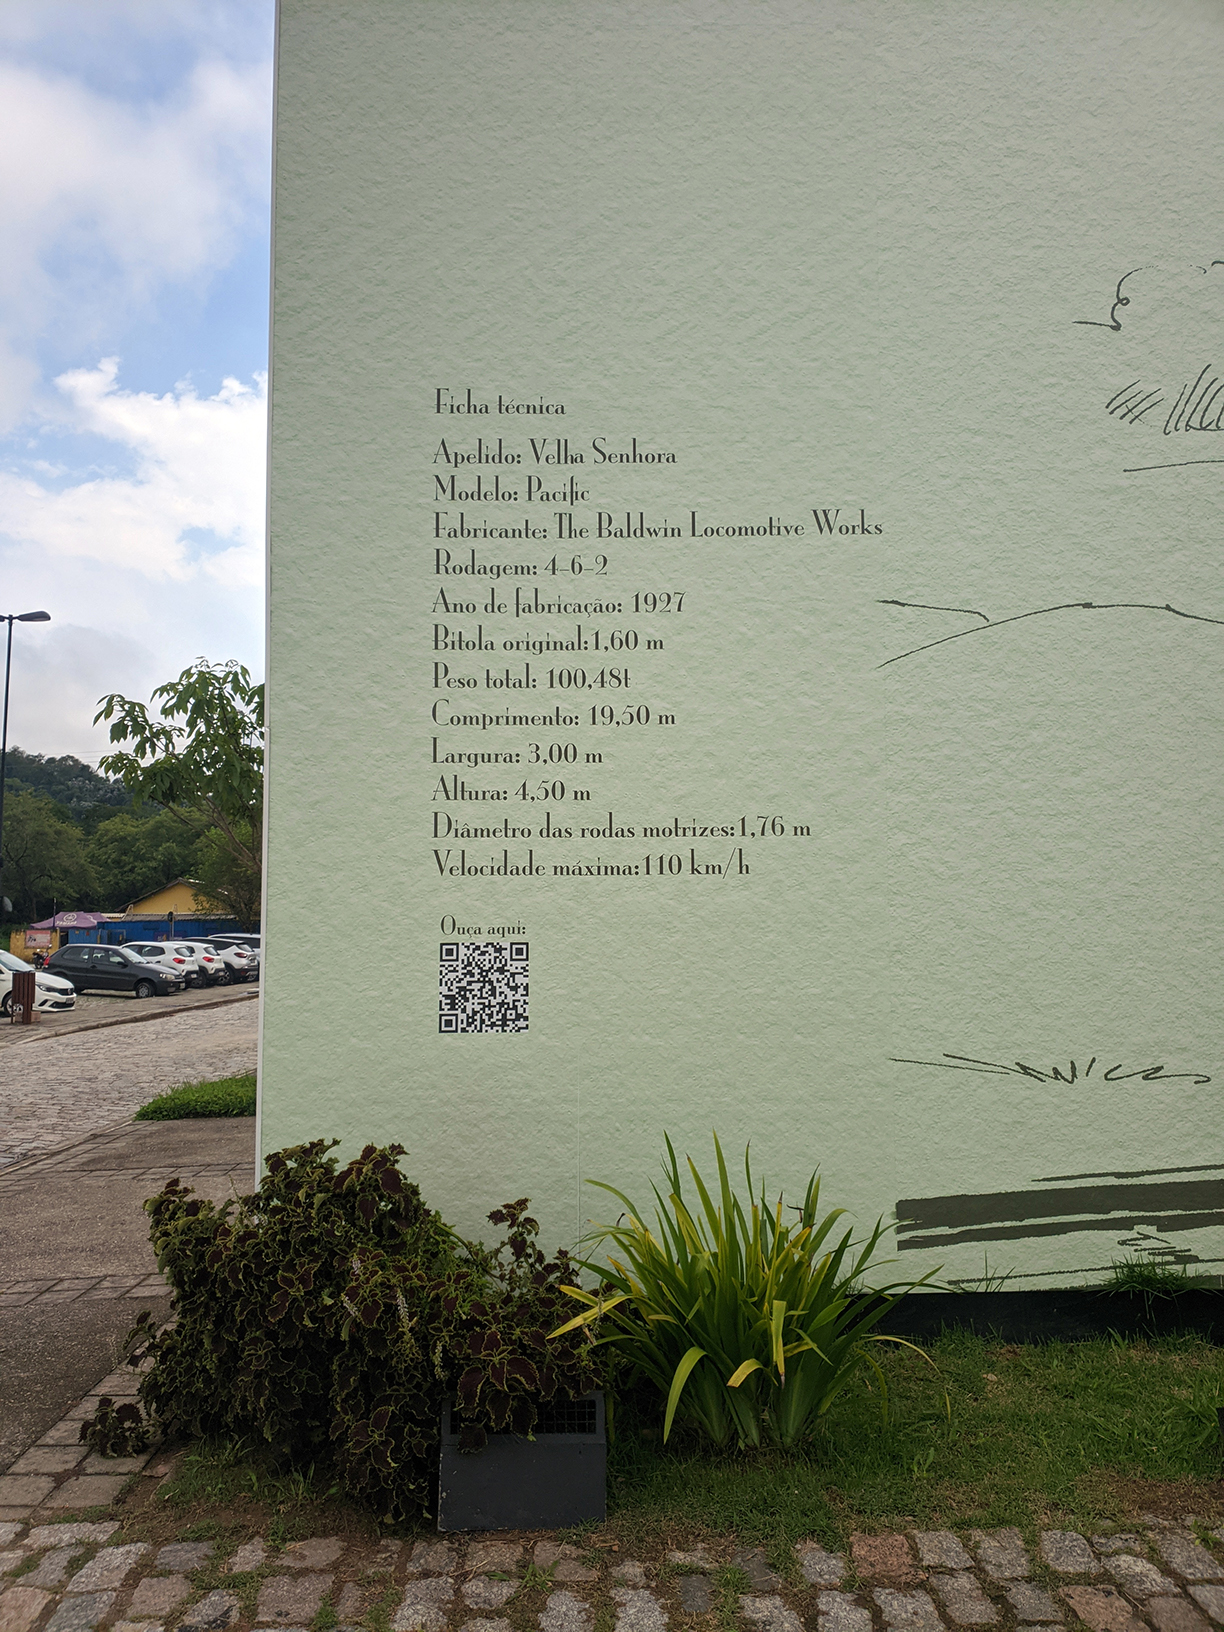 Ficha técnica
Apelido: Velha Senhora
Modelo: Pacific
Fabricante: The Baldwin Locomotive Works
Rodagem: 4-6-2
Ano de fabricação: 1927
Bitola original:1,60 m
Peso total: 100,48t
Comprimento: 19,50 m
Largura: 3,00 m
Altura: 4,50 m
Diâmetro das rodas motrizes:1,76 m
Velocidade máxima:110 km/h
Ouça aqui: